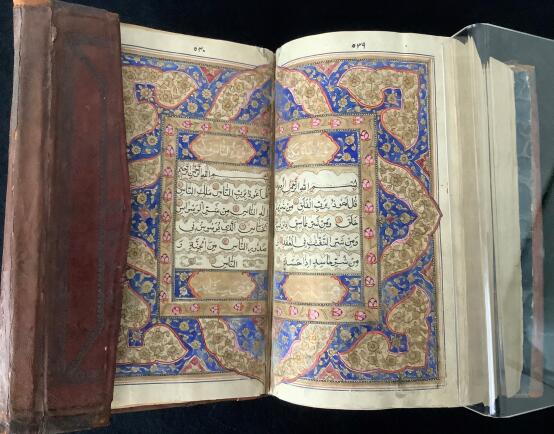 ٥٣٩
بسم الله الرحمن الرحيم
قل اعوذ برب الفلق من شر
خلق ومن شر غاسق
ومن شر النفثت فى العقد
ومن شر حاسد اذا حسد
بسم الله الرحمن الرحيم
قل اعوذ برب الناس ملك الناس
اله الناس من شر الوسواس
الخناس الذى يوسوس فى
صدور الناس من الجنة و
الناس